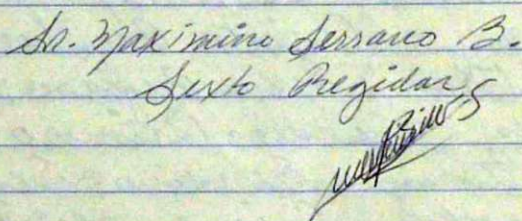 Sr. Maximino Serrano B.
Sexto Regidor